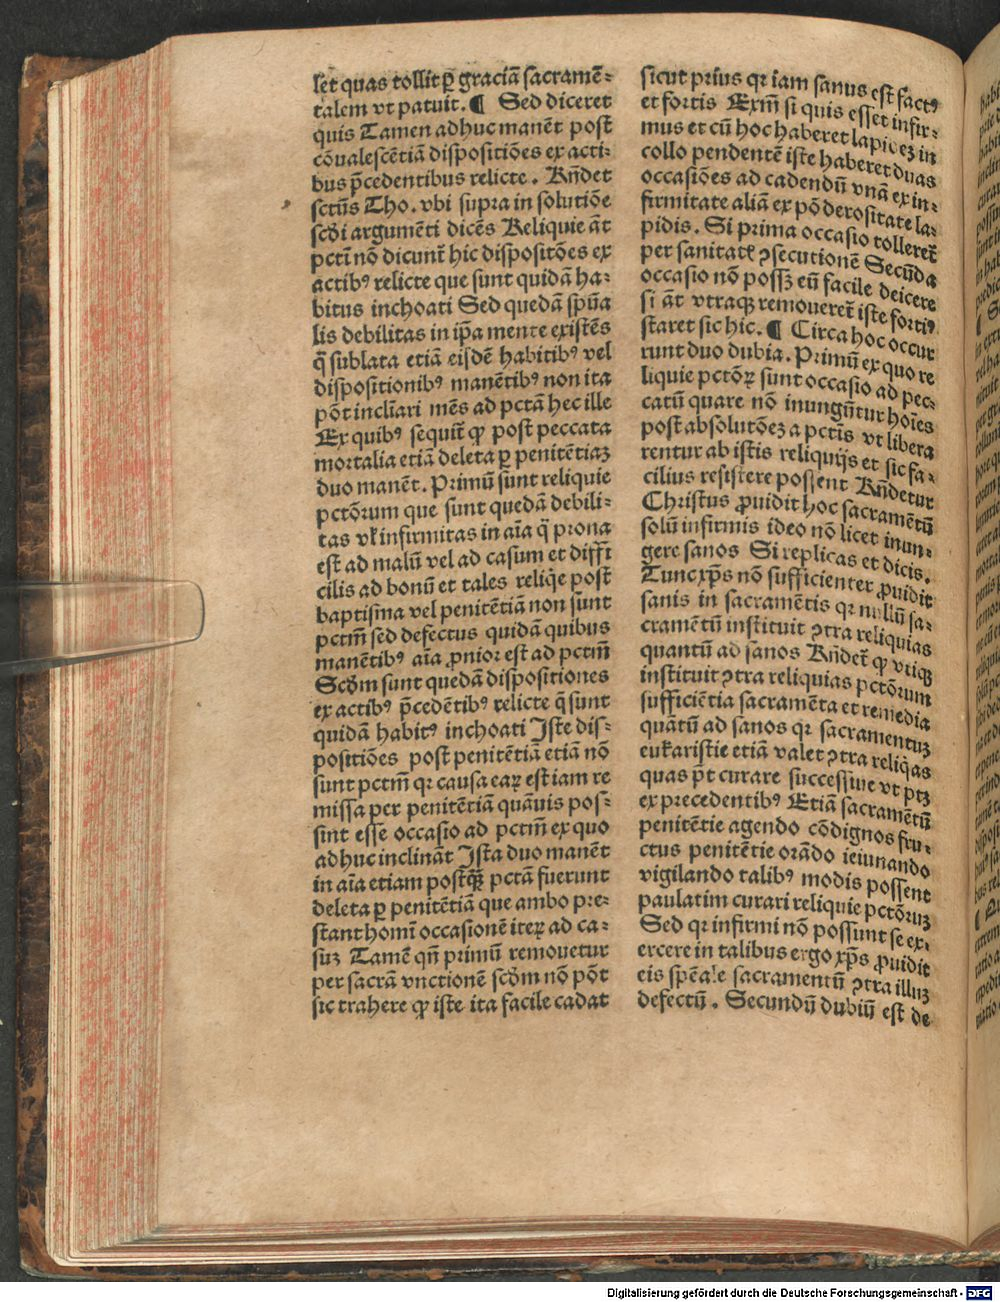 let quas tollit ꝑ graciã sacramẽ⸗
talem vt patuit. ¶ Sed diceret
quis Tamen adhuc manẽt post
cõualescẽtiã dispositiões ex acti⸗
bus p̃cedentibus relicte. Rñdet
sctũs Tho. vbi supra in solutiõe
scd̃i argumẽti dicẽs Reliquie ãt
pctĩ nõ dicunt̃ hic dispositões ex
actibꝰ relicte que sunt quidã ha⸗
bitus inchoati Sed quedã sp̃ua
lis debilitas in ip̃a mente existẽs
q̃ sublata etiã eisdẽ habitibꝰ vel
dispositionibꝰ manẽtibꝰ non ita
põt incliari mẽs ad pctã hec ille
Ex quibꝰ sequit̃ ꝙ post peccata
mortalia etiã deleta ꝑ penitẽtiaꝫ
duo manẽt. Primũ sunt reliquie
pctõrum que sunt quedã debili⸗
tas vl̃ infirmitas in aĩa q̃ prona
est ad malũ vel ad casum et diffi
cilis ad bonũ et tales reliq̃e post
baptisma vel penitẽtiã non sunt
pctm̃ sed defectus quidã quibus
manẽtibꝰ aĩa ꝓnior est ad pctm̃
Scd̃m sunt quedã dispositiones
ex actibꝰ p̃cedẽtibꝰ relicte q̃ sunt
quidã habitꝰ inchoati Iste dis⸗
positiões post penitẽtiã etiã nõ
sunt pctm̃ qꝛ causa eaꝝ est iam re
missa per penitẽtiã quãuis pos⸗
sint esse occasio ad pctm̃ ex quo
adhuc inclinãt Ista duo manẽt
in aĩa etiam postq̃ꝫ pctã fuerunt
deleta ꝑ penitẽtiã que ambo pre⸗
stant homĩ occasionẽ iteꝝ ad ca⸗
suꝫ Tamẽ qñ primũ remouetur
per sacrã vnctionẽ scd̃m nõ põt
sic trahere ꝙ iste ita facile cadat
sicut prius qꝛ iam sanus est factꝰ
et fortis Exm̃ si quis esset infir⸗
mus et cũ hoc haberet lapideꝫ in
collo pendentẽ iste haberet duas
occasiões ad cadendũ vnã ex in⸗
firmitate aliã ex põderositate la⸗
pidis. Si prima occasio tolleret̃
per sanitatꝭ ꝯsecutionẽ Secũda
occasio nõ possꝫ eũ facile deicere
si ãt vtraqꝫ remoueret̃ iste fortiꝰ
staret sic hic. ¶ Circa hoc occur
runt duo dubia. Primũ ex quo re
liquie pctõꝝ sunt occasio ad pec⸗
catũ quare nõ inungũtur hoĩes
post absolutõeꝫ a pctĩs vt libera
rentur ab istis reliquijs et sic fa⸗
cilius resistere possent Rñdetur
Christus ꝓuidit hoc sacramẽtũ
solũ infirmis ideo nõ licet inun⸗
gere sanos Si replicas et dicis.
Tunc xp̃s nõ sufficienter ꝓuidit
sanis in sacramẽtis qꝛ nullũ sa⸗
cramẽtũ instituit ꝯtra reliquias
quantũ ad sanos Rñdet̃ ꝙ vtiqꝫ
instituit ꝯtra reliquias pctõrum
sufficiẽtia sacramẽta et remedia
quãtũ ad sanos qꝛ sacramentuꝫ
eukaristie etiã valet ꝯtra reliq̃as
quas p̃t curare successiue vt ptꝫ
ex precedentibꝰ Etiã sacramẽtũ
penitẽtie agendo cõdignos fru⸗
ctus penitẽtie orãdo ieiunando
vigilando talibꝰ modis possent
paulatim curari reliquie pctõruꝫ
Sed qꝛ infirmi nõ possunt se ex⸗
ercere in talibus ergo xp̃s ꝓuidit
eis spẽale sacramentũ ꝯtra illuꝫ
defectũ. Secundũ dubiũ est de
Digitalisierung gefördert durch die Deutsche Forschungsgemeinschaft - DFG